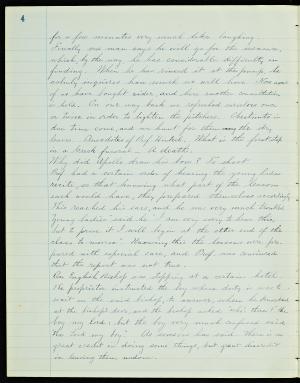 4
for a few minutes very much like laughing.
Finally one man says he will go for the measure,
which, by the way he has considerable difficulty in
finding. When he has rinsed it at the pump, he
calmly inquires how much we will have. Now some
of us have bought cider, and here another consultation
is held. On our way back we refreshed ourselves once
or twice in order to lighten the pitchers. Chestnuts in
due time come, and we hunt for them among the dry
leaves. Anecdotes of Prof. What is the first step
in a Greek funeral – is death.
Why did Apollo draw his bow? To shoot.
Prof. had a certain order of hearing the young ladies
recite, so that knowing what part of the lesson
each would have, they prepared themselves accordingly.
This reached his ears, and he one day said
Young ladies said he "I am very sorry to hear this,
but to prove it I will begin at the other end of the
class to-morrow". Knowing this the lessons were pre-
pared with especial care, and Prof. was convinced
that the report was not true.
An English Bishop was stopping at a certain hotel.
The proprietor instructed the boy whose duty it was to
wait on the said bishop, to answer, when he knocked
at the bishop's door, and the bishop asked "who's there?" the
boy my lord, but the boy very much confused said
"the lord my boy". As someone has said there is a
great credit in doing some things, but great discredit
in leaving them undone.